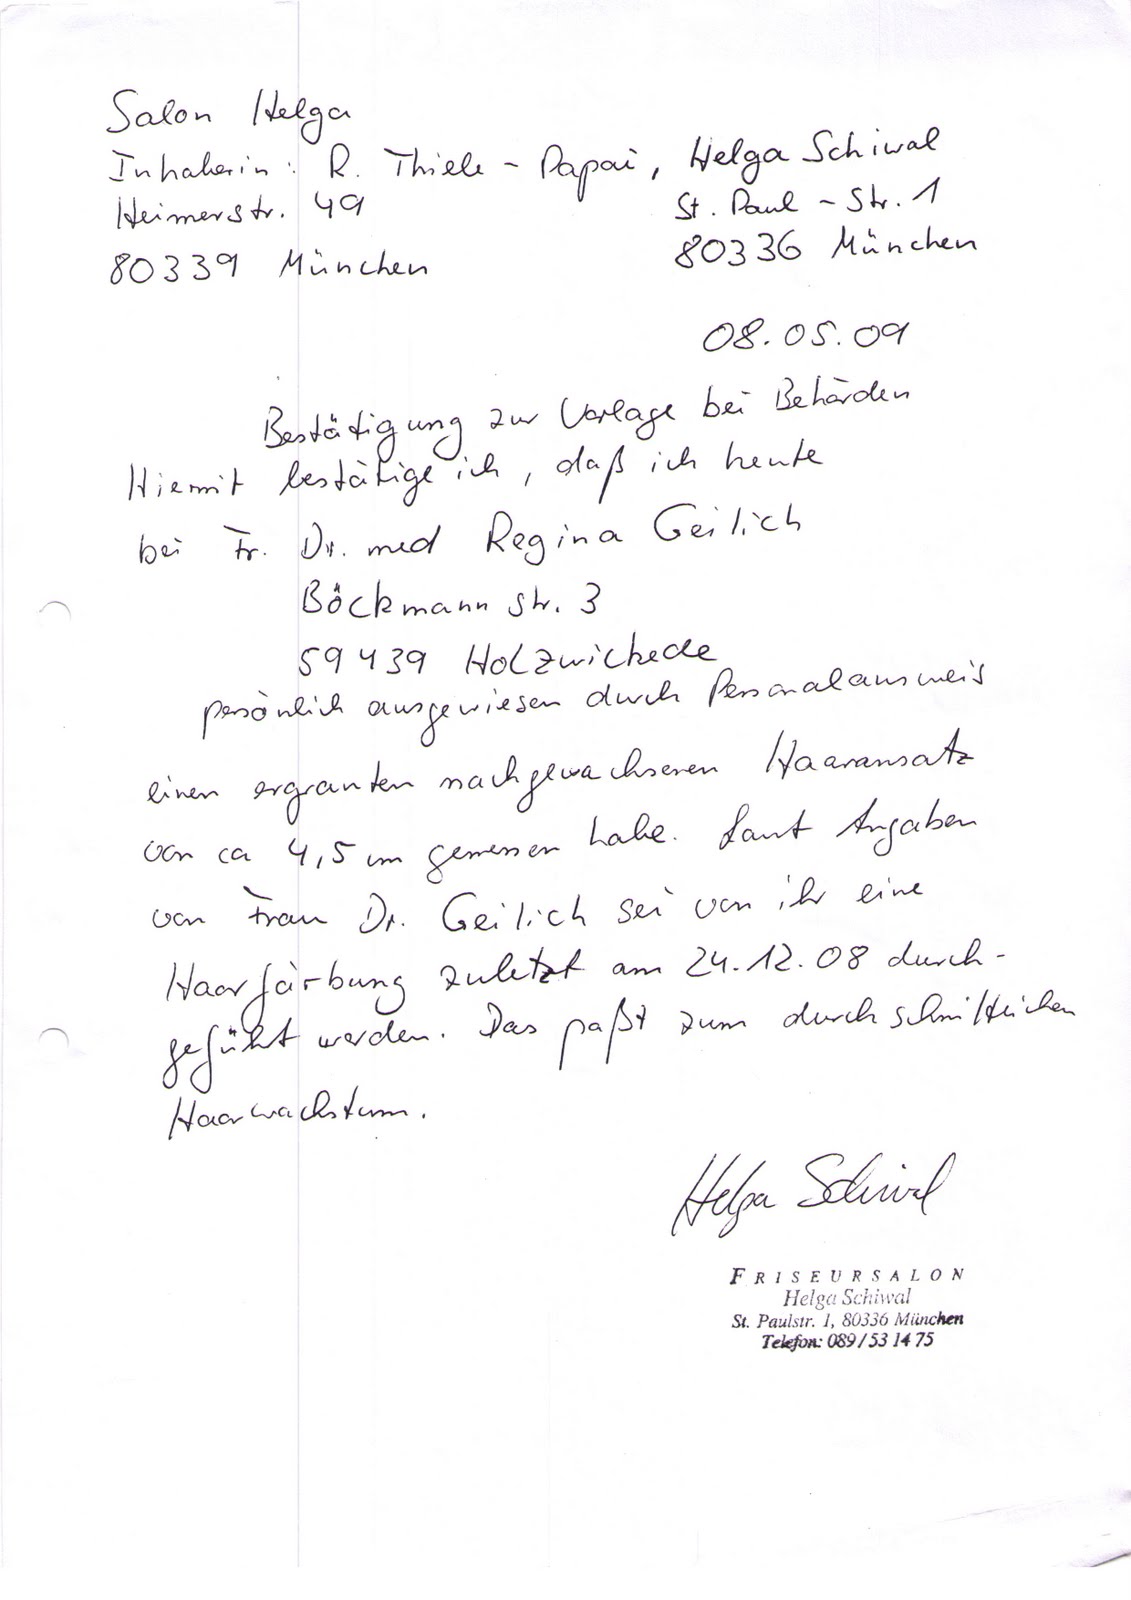 Salon Helga
Inhaberin: R. Thiele - Papai, Helga Schiwal
Heimerstr. 49
St. Paul - Str. 1
80339 München
80336 München
08.05.09
Bestätigung zur Vorlage bei Behörden
Hiermit bestätige ich, daß ich heute
bei Fr. Dr. med Regina Geilich
Böckmann str. 3
59439 Holzwickede
persönlich ausgewiesen durch Personalausweis
einen ergrauten nachgewachsenen Haaransatz
von ca 4,5 cm gemessen habe. Laut Angaben
von Frau Dr. Geilich sei von ihr eine
Haarfärbung zuletzt am 24.12.08 durch-
geführt worden. Das paßt zum durchschnittlichen
Haarwachstum.
Helga Schiwal
FRISEURSALON
Helga Schiwal
St. Paulstr. 1, 80336 München
Telefon: 089/53 14 75